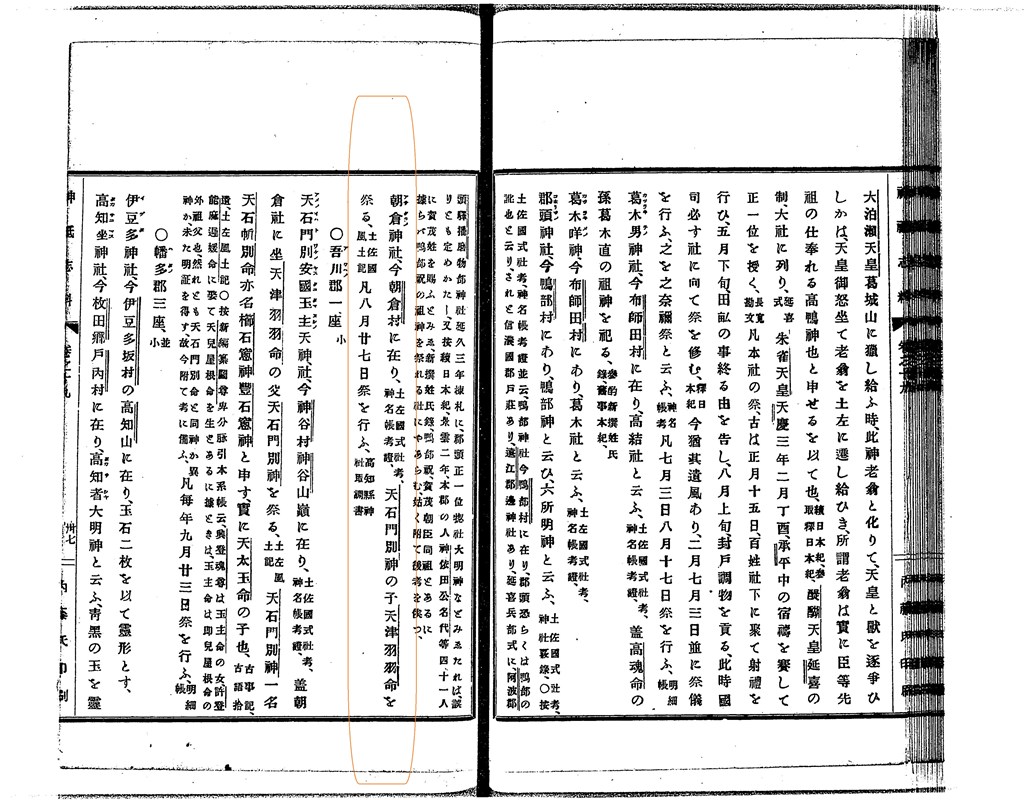 大泊瀬天皇葛城山に獵し給ふ時、此神老翁と化りて、天皇と獸を逐爭ひ
しかは、天皇御怒坐て老翁を土左に遷し給ひき、所謂老翁は實に臣等先
祖の仕奉れる高鴨神也と申せるを以て也、續日本紀、參取釋日本紀、醍醐天皇延喜の
制、大社に列り、延喜式 朱雀天皇天慶三年二月丁酉、承平中の宿禱を賽して
正一位を授く、長寬勘文 凡本社の祭、古は正月十五日、百姓社下に聚て射禮を
行ひ、五月下旬田畝の事終る由を告し、八月上旬、封戸調物を貢る、此時國
司必す社に向て祭を修む、釋日本紀 今猶其遺風あり、二月七月三日並に祭儀
を行ふ、之を之奈禰祭と云ふ、神名帳考 凡七月三日八月十七日祭を行ふ、明細帳
葛木男神社、今布師田村に在り、高結社と云ふ、土佐國式社考、神名帳考證、 盖高魂命の
孫葛木直の祖神を祀る、參酌新撰姓氏錄舊事本紀、
葛木咩神、今布師田村にあり、葛木社と云ふ、土左國式社考、神名帳考證、
郡頭神社、今鴨部村にあり、鴨部神と云ひ、六所明神と云ふ、土佐國式社考、神社覈錄、〇按
土佐國式社考、神名帳考證並云、鴨部神社今鴨部村に在り、郡頭恐らくは鴨部の
訛也と云り、されと信濃國郡戸莊あり、遠江郡邊神社あり、延喜兵部式に、阿波郡
頭驛播磨物部神社延久三年棟札に、郡頭正一位惣社大明神などみゑたれば、誤
りとも定めかたし又按續日本紀景雲二年本郡の人神依田公名代等四十一人
に賀茂姓を賜ふとみゑ新撰姓氏錄、鴨部祝賀茂朝臣同祖とあるに
據らバ鴨部祝の祖神を祭れる社にやあらむ姑く附て後考を俟つ、
朝倉神社、今朝倉村に在り、土左國式社考、神名帳考證、 天石門別神の子天津羽羽命を
祭る、土佐國風土記 凡八月廿七日祭を行ふ、高知縣神社取調書
〇吾川郡一座 小
天石門別安國玉主天神社、今神谷村神谷山巓に在り、土佐國式社考、神名帳考證、 盖朝
倉社に坐天津羽羽命の父天石門別神を祭る、土左風土記 天石門別神一名
天石帆別命亦名櫛石窻神豐石窻神と申す、實に天太玉命の子也、古事記、古語拾
遺、土左風土記〇按新編纂圖尊卑分脉引本系帳云、與登魂尊は玉主命の女許登
能麻遲媛命に娶て天兒屋根命を生とあるに據ときは、玉主命は即兒屋根命の
外祖父也、然れとも天石門別命と同神か異
神か未た明証を得す、故今附て考に備ふ、凡每年九月廿三日祭を行ふ、明細帳
〇幡多郡三座、並小
伊豆多神社、今伊豆多坂村の高知山に在り、玉石二枚を以て靈形とす、
高知坐神社、今枚田鄉戸內村に在り、高知者大明神と云ふ、靑黑の玉を靈
神祇志料
卷之十九
卅七